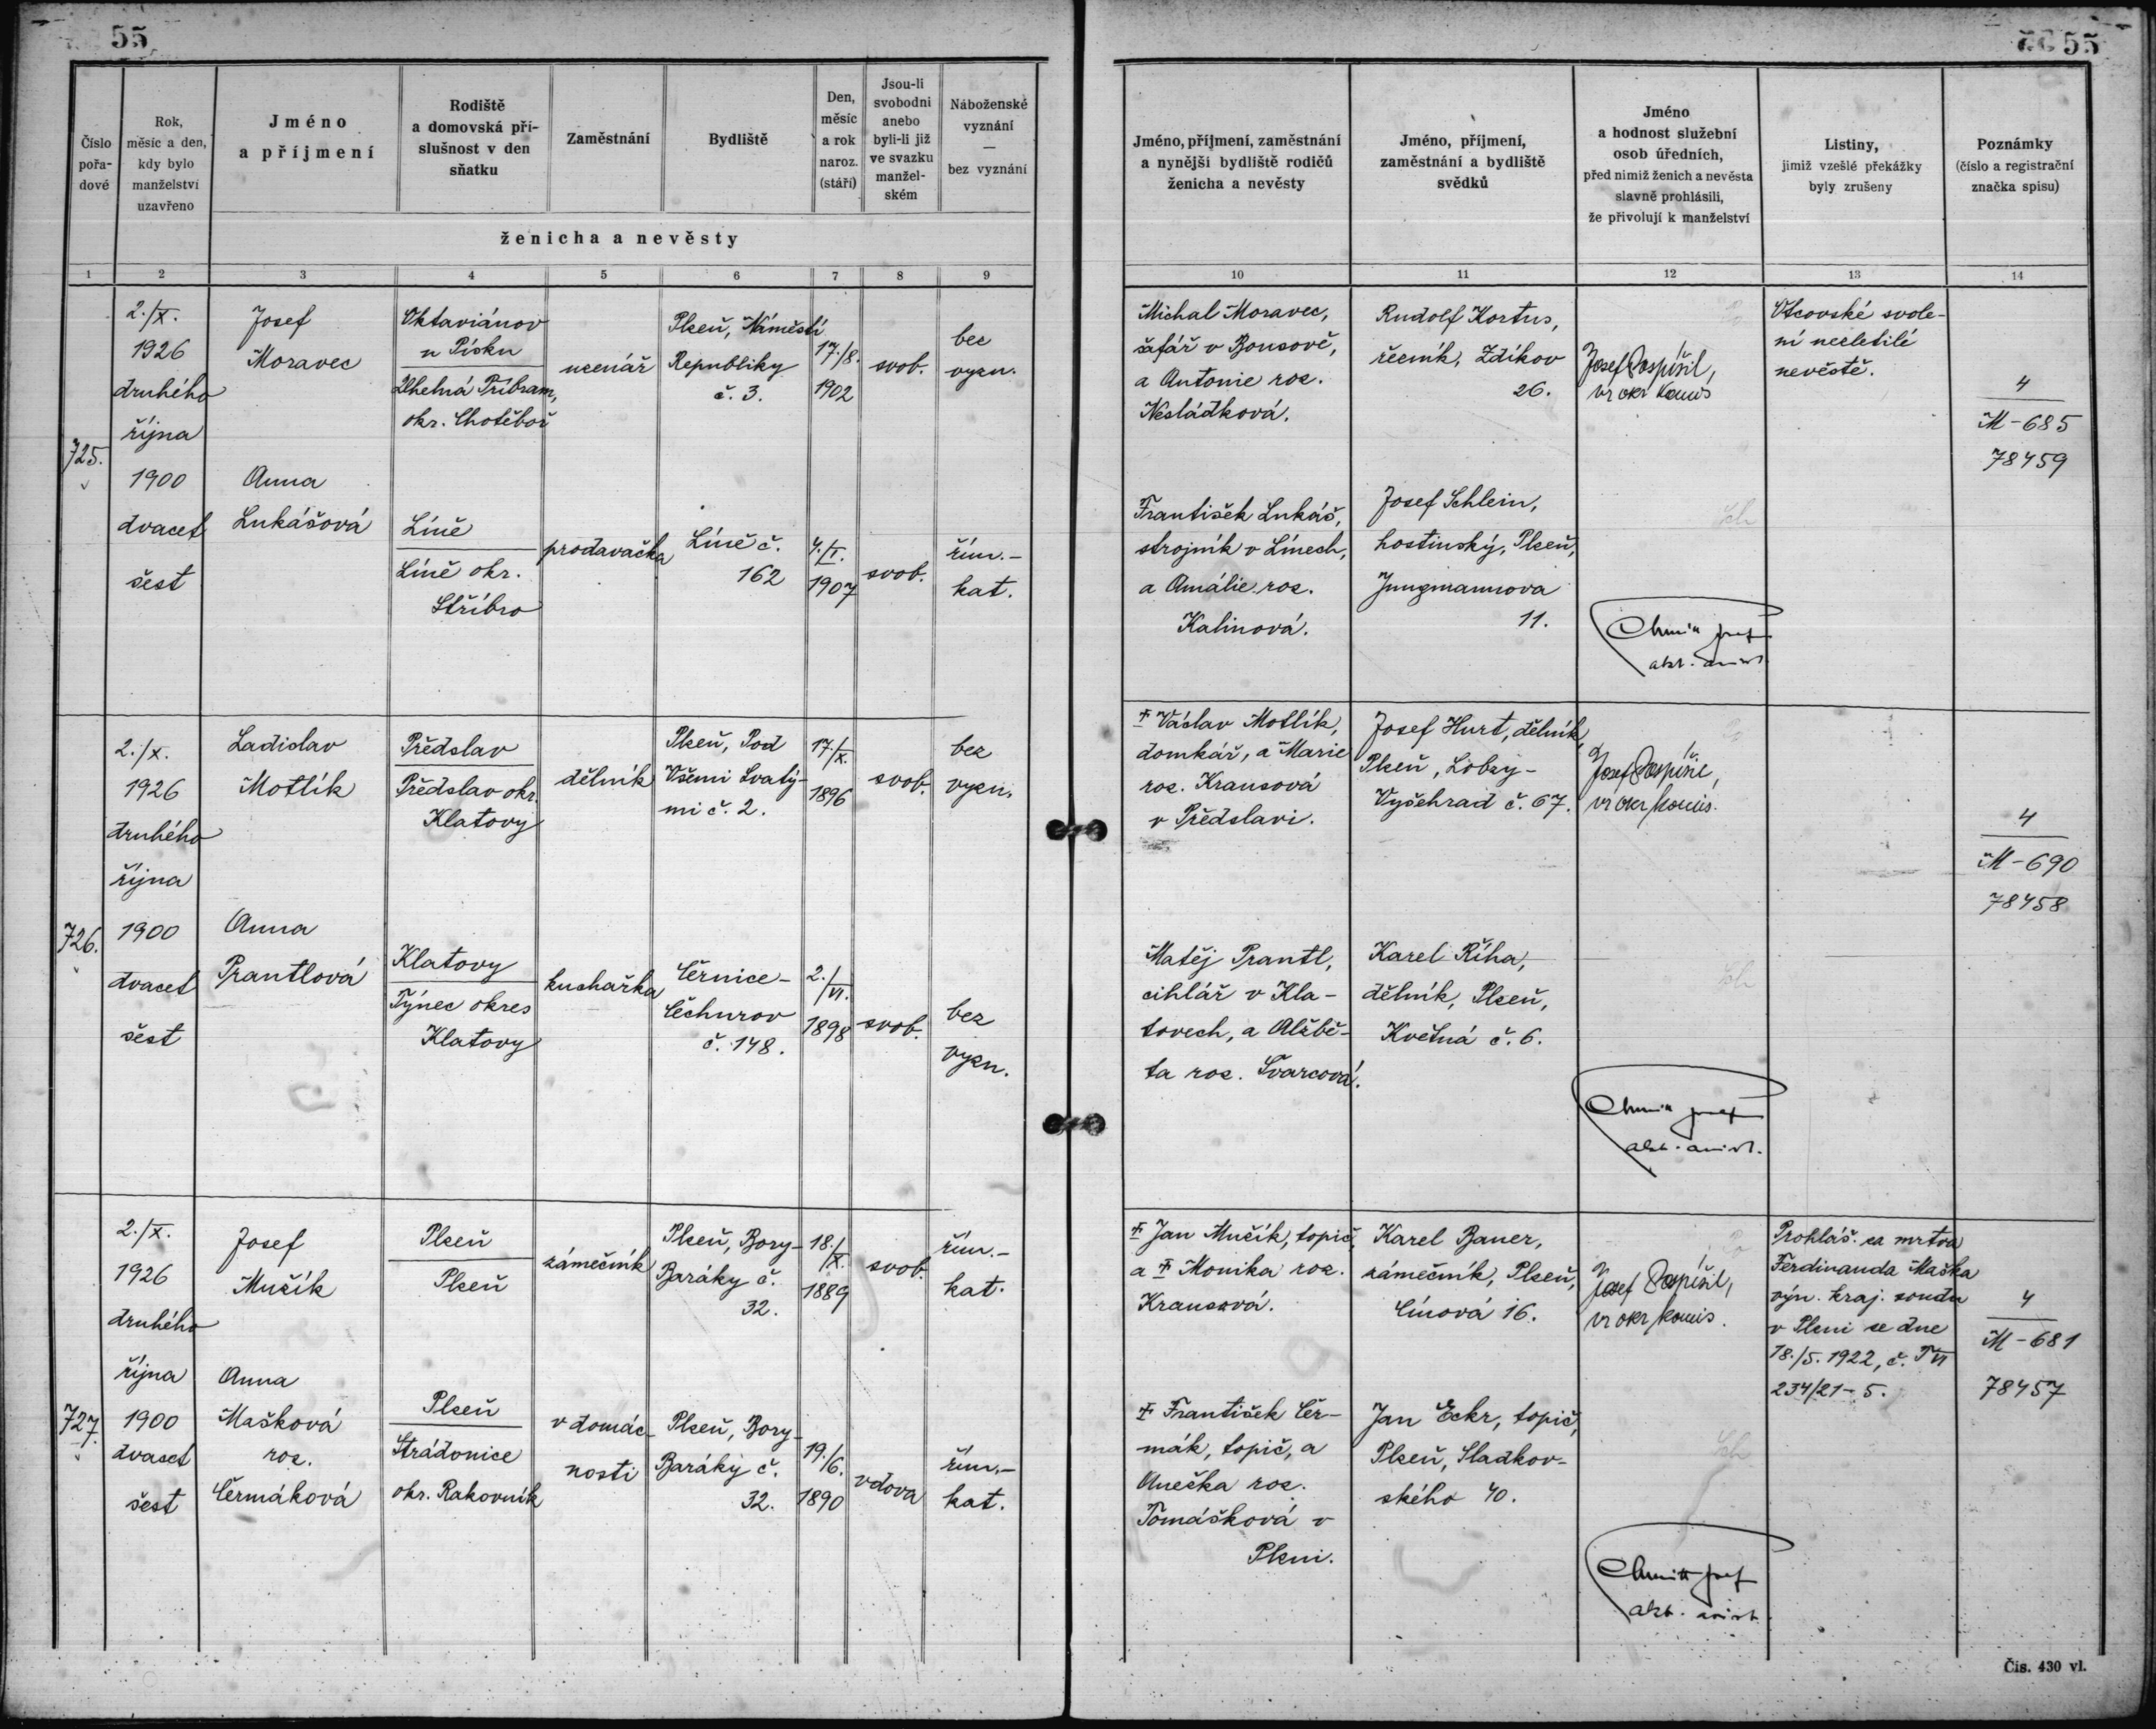 55
55
Číslo pořadové
Rok, měsíc a den, kdy bylo manželství uzavřeno
Jméno a příjmení
Rodiště a domovská příslušnost v den sňatku
Zaměstnání
Bydliště
Den, měsíc a rok naroz. (stáří)
Jsou-li svobodni anebo byli-li již ve svazku manželském
Náboženské vyznání — bez vyznání
ženicha a nevěsty
Jméno, příjmení, zaměstnání a nynější bydliště rodičů ženicha a nevěsty
Jméno, příjmení, zaměstnání a bydliště svědků
Jméno a hodnost služební osob úředních, před nimiž ženich a nevěsta slavně prohlásili, že přivolují k manželství
Listiny, jimiž vzešlé překážky byly zrušeny
Poznámky (číslo a registrační značka spisu)
1 2 3 4 5 6 7 8 9 10 11 12 13 14
725.
2./X.
1926
druhého
října
1900
dvacet
šest
Josef
Moravec
Oktaviánov
u Písku
Uhelná Příbram,
okr. Chotěboř
uzenář
Plzeň, Náměstí
Republiky
č. 3.
17./8.
1902
svob.
bez
vyzn.
Michal Moravec,
šafář v Bousově,
a Antonie roz.
Nesládková.
Rudolf Kortus,
řezník, Zdíkov
26.
Josef Pospíšil,
vr okr komis
Otcovské svole-
ní nezletilé
nevěstě.
4
M-685
78459
Anna
Lukášová
Líně
Líně okr.
Stříbro
prodavačka
Líně č.
162
4./I.
1907
svob.
řím.-
kat.
František Lukáš,
strojník v Línech,
a Amálie roz.
Kalinová.
Josef Schlein,
hostinský, Plzeň,
Jungmannova
11.
726.
2./X.
1926
druhého
října
1900
dvacet
šest
Ladislav
Motlík
Předslav
Předslav okr.
Klatovy
dělník
Plzeň, Pod
Všemi Svatý-
mi č. 2.
17./X.
1896
svob.
bez
vyzn.
Ŧ Václav Motlík,
domkář, a Marie
roz. Krausová
v Předslavi.
Josef Hurt, dělník,
Plzeň, Lobzy-
Vyšehrad č. 67.
Josef Pospíšil,
vr okr komis.
4
M-690
78458
Anna
Prantlová
Klatovy
Týnec okres
Klatovy
kuchařka
Černice-
Čechurov
č. 148.
2./VI.
1898
svob.
bez
vyzn.
Matěj Prantl,
cihlář v Kla-
tovech, a Alžbě-
ta roz. Švarcová.
Karel Říha,
dělník, Plzeň,
Květná č. 6.
727.
2./X.
1926
druhého
října
1900
dvacet
šest
Josef
Mučík
Plzeň
Plzeň
zámečník
Plzeň, Bory-
Baráky č.
32.
18./X.
1889
svob.
řím.-
kat.
Ŧ Jan Mučík, topič,
a Ŧ Monika roz.
Krausová.
Karel Bauer,
zámečník, Plzeň,
Cínová 16.
Josef Pospíšil,
vr okr komis.
Prohláš. za mrtva
Ferdinanda Maška
výn. kraj. soudu
v Plzni ze dne
18./5. 1922, č. T VI
234/21-5.
4
M-681
78457
Anna
Mašková
roz.
Čermáková
Plzeň
Strádonice
okr. Rakovník
v domác-
nosti
Plzeň, Bory-
Baráky č.
32.
19./6.
1890
vdova
řím.-
kat.
Ŧ František Čer-
mák, topič, a
Anežka roz.
Tomášková v
Plzni.
Jan Eckr, topič,
Plzeň, Sladkov-
ského 40.
Čís. 430 vl.